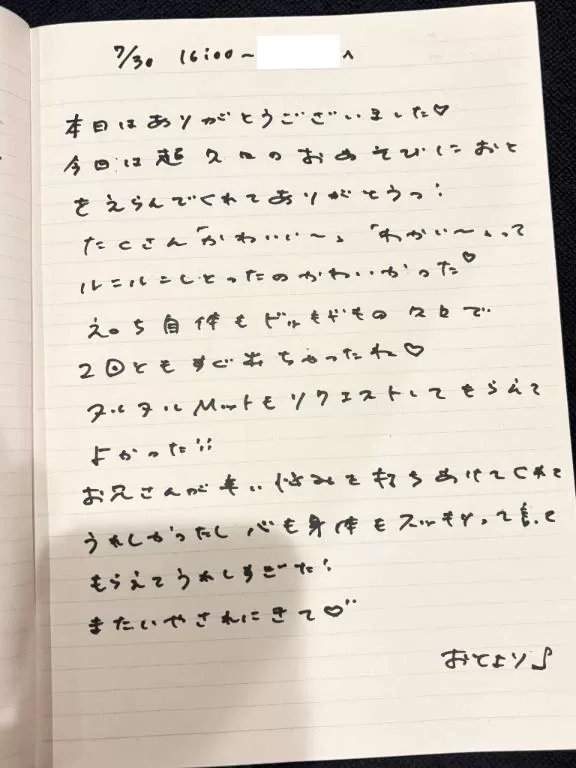 7/30 16:00~ へ
本日はありがとうございました♡
今回は超久々のおめそびにおと
をえらんでくれてありがとうっ!
たくさん「かわいい〜」「わかい〜」って
ルンルンしとったのかわいかった♡
えっち自体もドッキドキの久々で
2回ともすぐおちゃったね♡
ヌルヌルMットもリクエストしてもらえて
よかった!!
お兄さんが辛い悩みを打ちあけてくれて
うれしかったし心も身体もスッキリって言って
もらえてうれしすぎた!
またいやされにきて♡
おとより♪